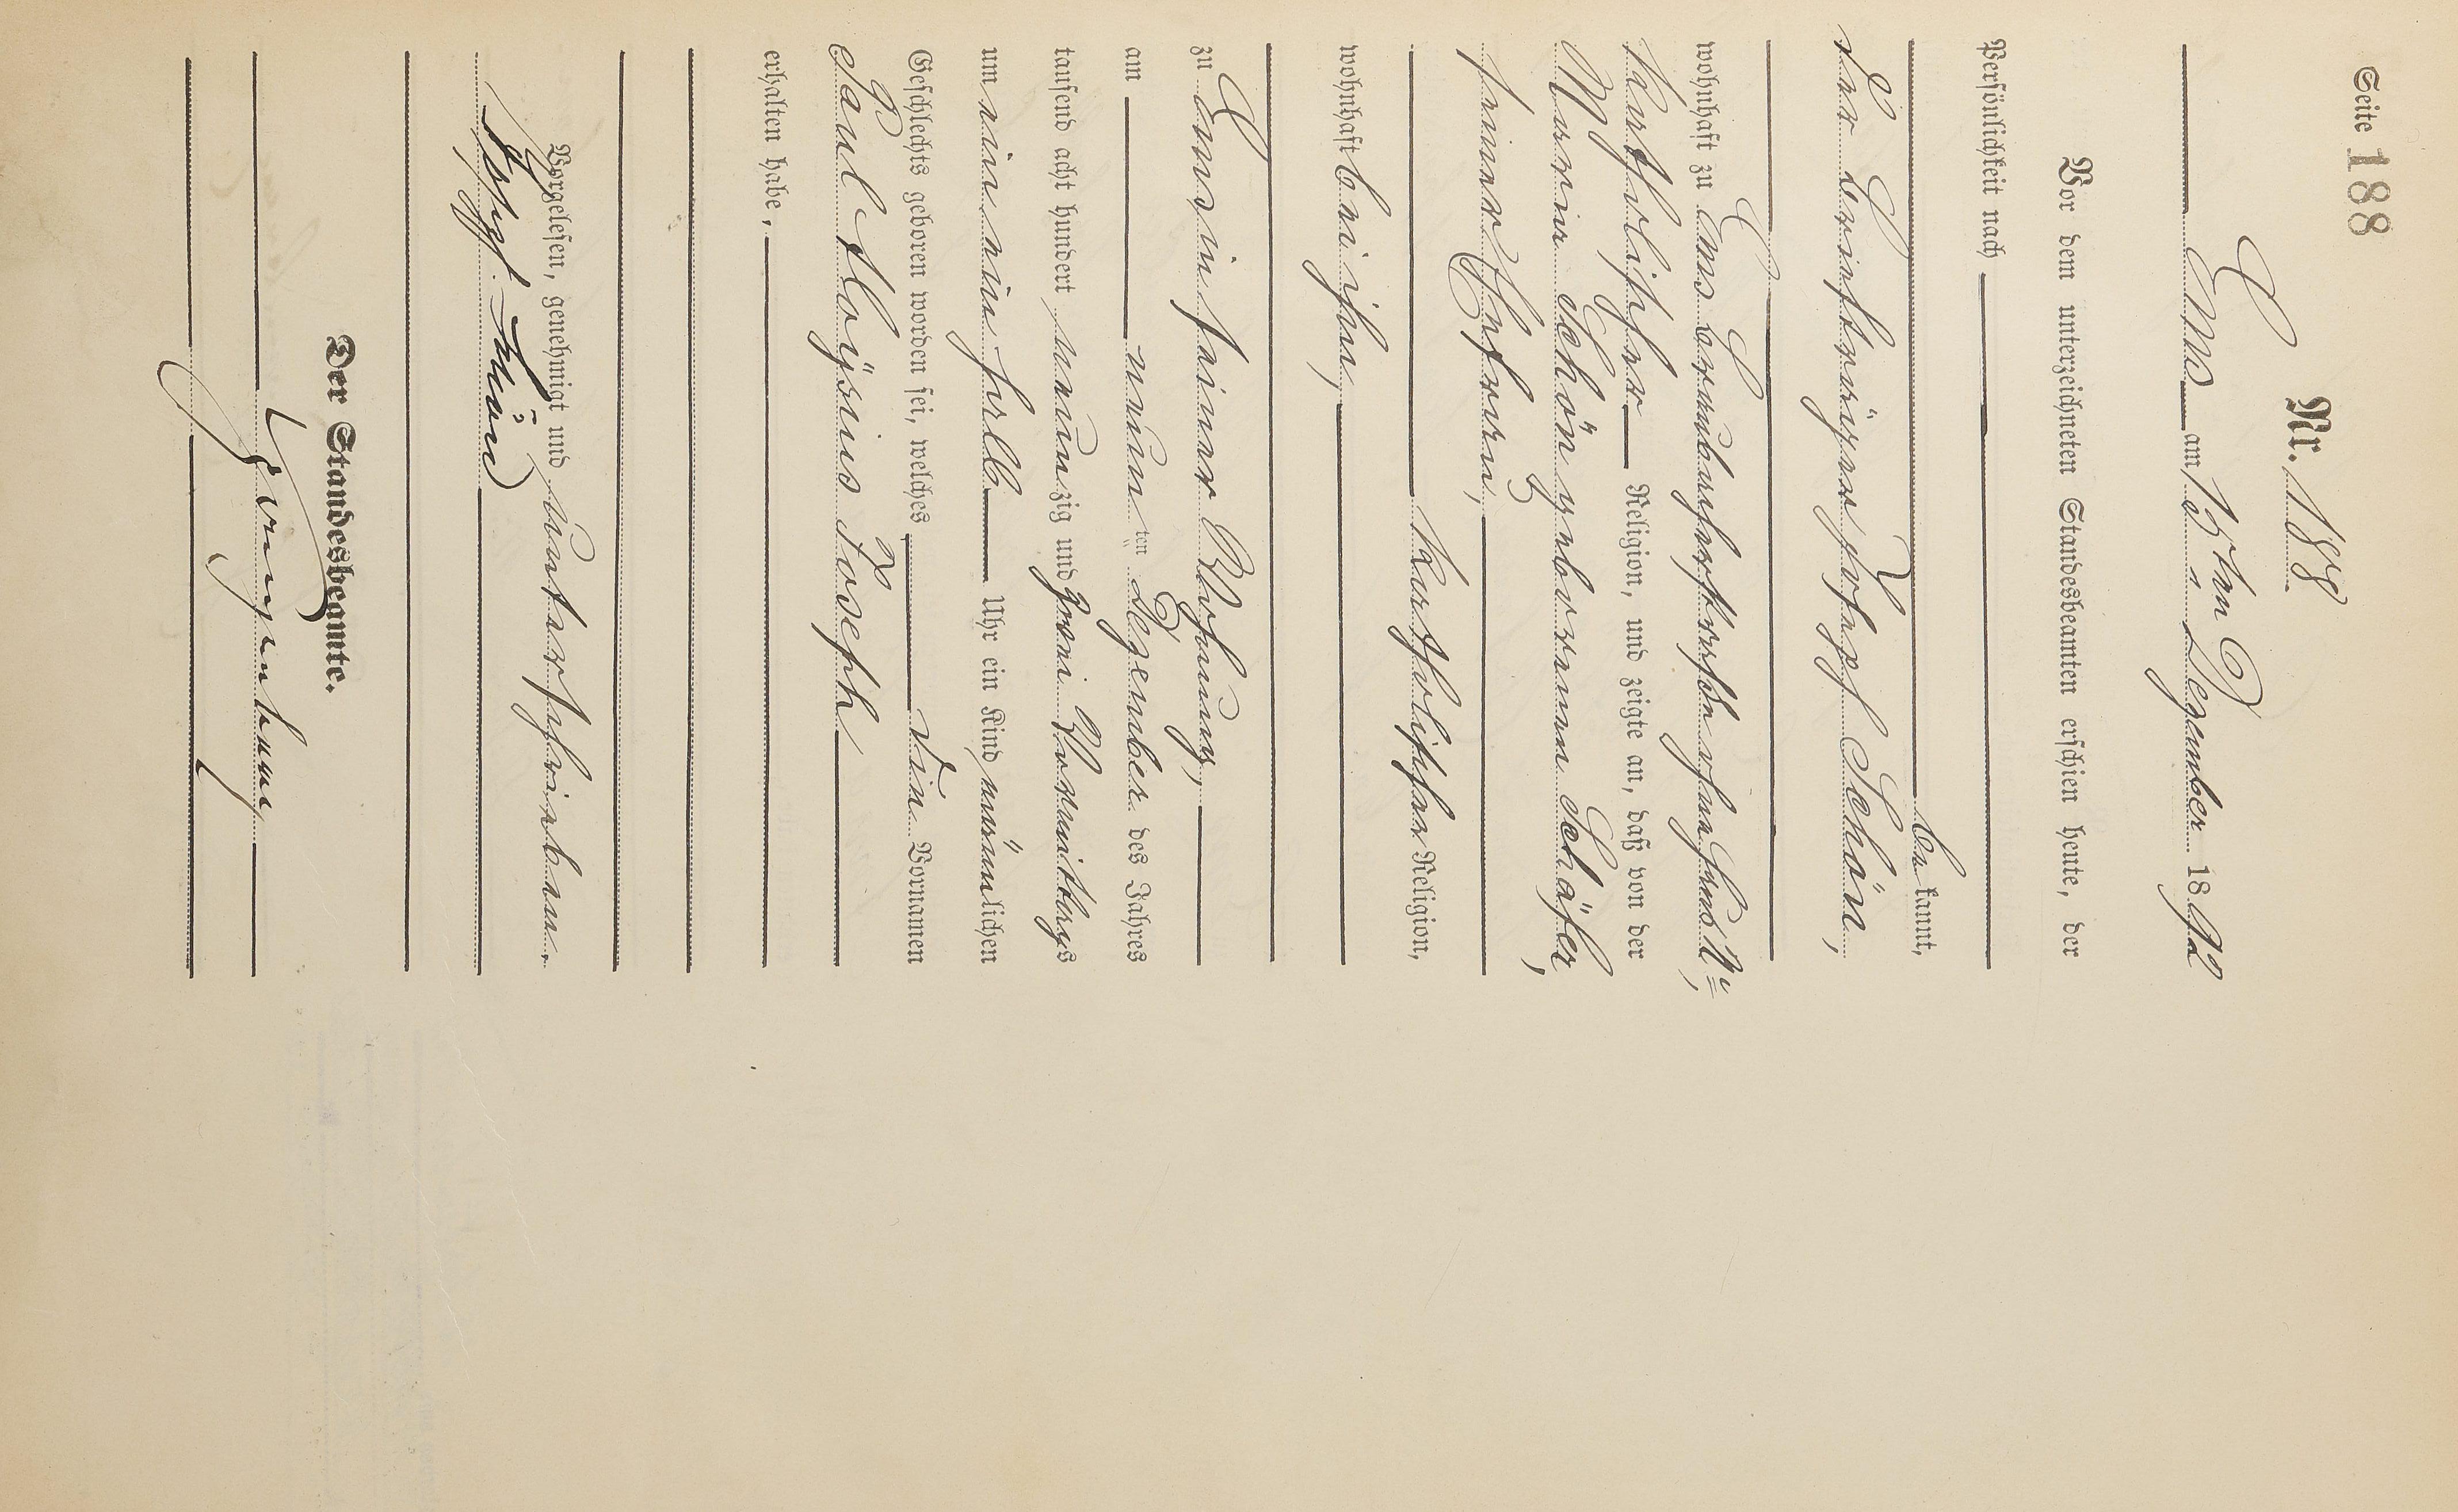 Seite 188
Nr. 188
Ems am 15ten Dezember 1892
Vor dem unterzeichneten Standesbeamten erschien heute, der
Persönlichkeit nach
bekannt,
der Briefträger Joseph Schön,
wohnhaft zu Ems
katholischer Religion, und zeigte an, daß von der
Maria Schön geborenen Schäfer,
seiner Ehefrau,
katholischer Religion,
wohnhaft bei ihm,
zu Ems in seiner Wohnung,
am neunten Dezember des Jahres
tausend acht hundert neunzig und zwei Vormittags
um ein halb Uhr ein Kind männlichen
Geschlechts geboren worden sei, welches die Vornamen
Paul Aloÿsius Joseph
erhalten habe.
Vorgelesen, genehmigt und unterschrieben.
Joseph Schön
Der Standesbeamte.